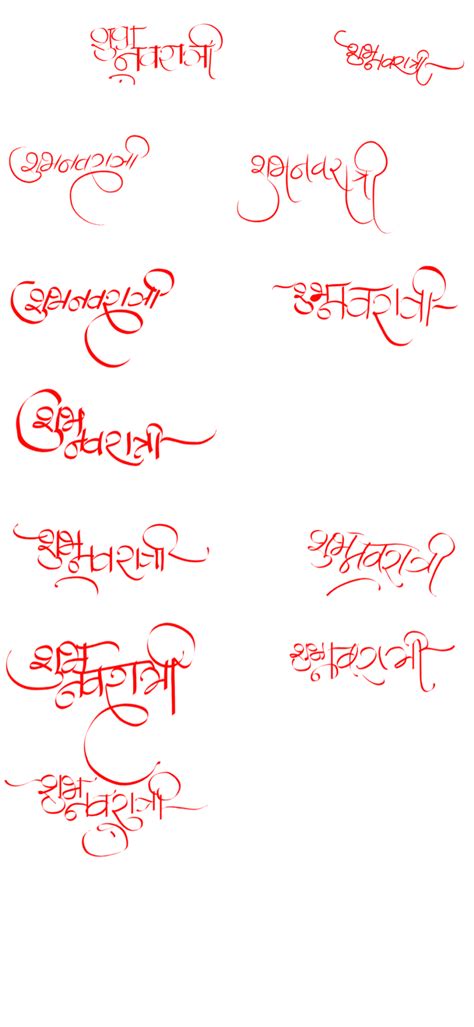 शुभ नवरात्री
शुभ नवरात्री
शुभ नवरात्री
शुभ नवरात्री
शुभ नवरात्री
शुभ नवरात्री
शुभ नवरात्री
शुभ नवरात्री
शुभ नवरात्री
शुभ नवरात्री
शुभ नवरात्री
शुभ नवरात्री